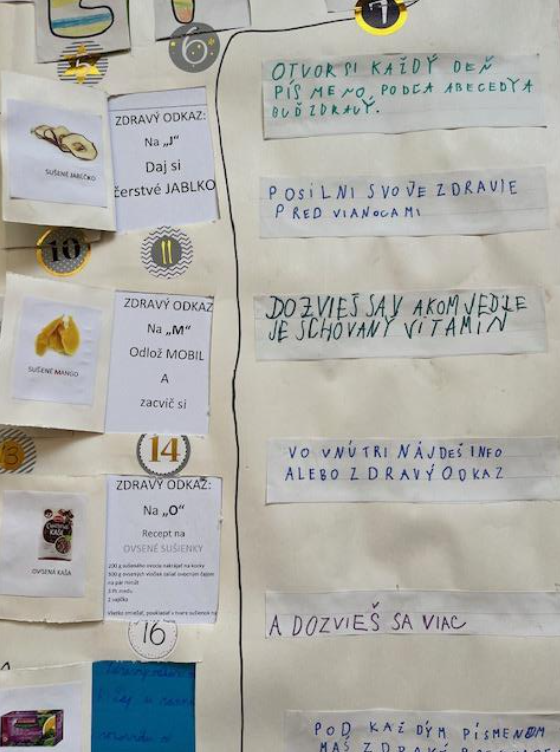 5
6
7
OTVOR SI KAŽDÝ DEŇ
PÍSMENO PODĽA ABECEDY A
BUĎ ZDRAVÝ.
ZDRAVÝ ODKAZ:
Na „J“
Daj si
čerstvé JABLKO
SUŠENÉ JABĹČKO
POSILNI SVOJE ZDRAVIE
PRED VIANOCAMI
10
11
DOZVIEŠ SA V AKOM JEDLE
JE SCHOVANÝ VITAMÍN
ZDRAVÝ ODKAZ
Na „M“
Odlož MOBIL
A
zacvič si
SUŠENÉ MANGO
13
14
VO VNÚTRI NÁJDEŠ INFO
ALEBO ZDRAVÝ ODKAZ
ZDRAVÝ ODKAZ:
Na „O“
Recept na
OVSENÉ SUŠIENKY
KAŠE
OVSENÁ KAŠA
200 g sušeného ovocia nakrájať na kocky
na pár minút
2 vajíčka
A DOZVIEŠ SA VIAC
16
POD KAŽDÝM PÍSMENOM
MÁŠ ZDRAVÝ